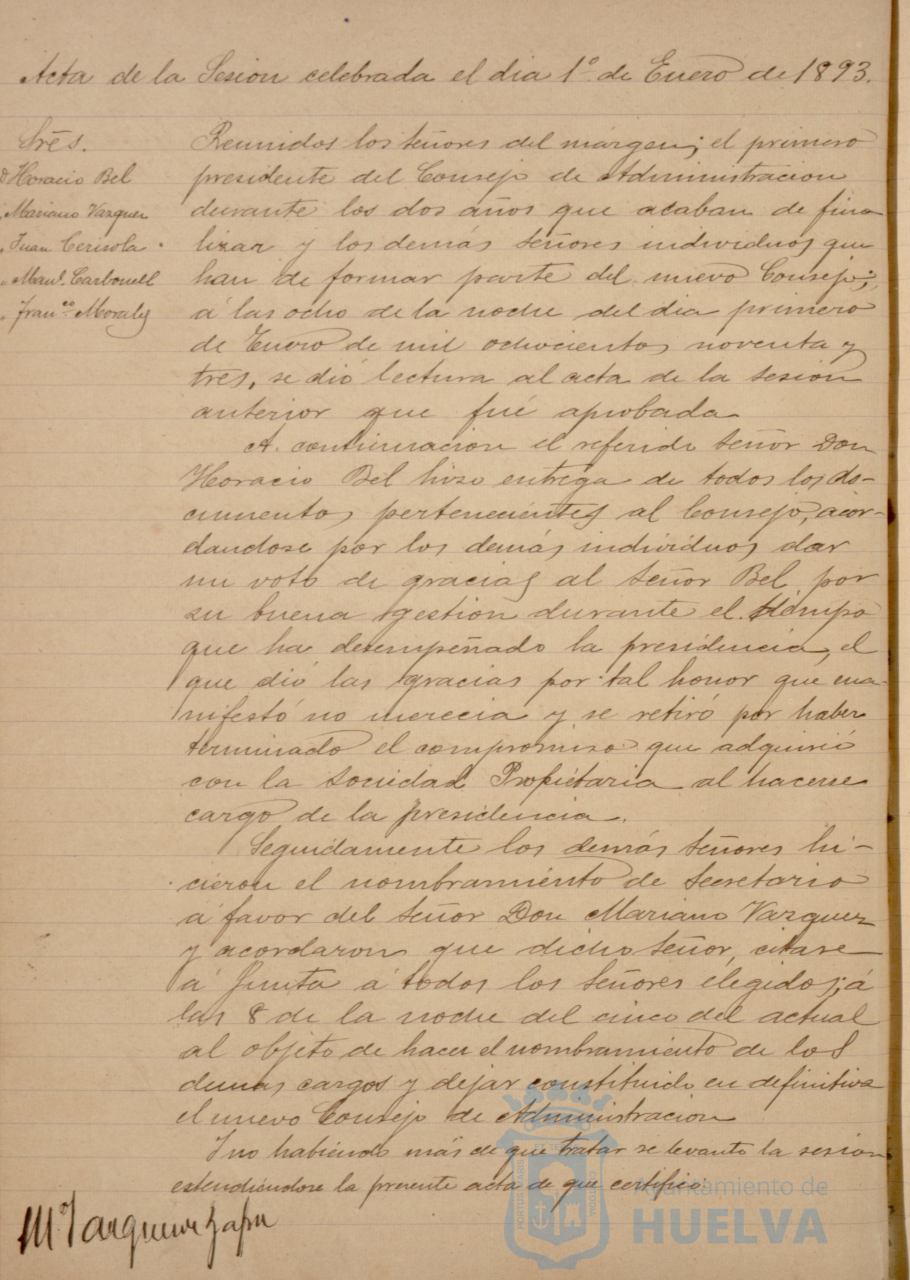 Acta de la Sesion celebrada el dia 1º de Enero de 1893.
Srēs.
D Horacio Bel
" Mariano Vazquez
" Juan Cerisola
" Manl. Carbonell
" Franco Morales
Reunidos los señores del márgen; el primero
presidente del Consejo de Administracion
durante los dos años que acaban de fina
lizar y los demás señores individuos que
han de formar parte del nuevo Consejo;
á las ocho de la noche del dia primero
de Enero de mil ochocientos noventa y
tres, se dió lectura al acta de la sesion
anterior que fué aprobada
A continuacion el referido señor Don
Horacio Bel hizo entrega de todos los do-
cumentos pertenecientes al Consejo, acor-
dandose por los demás individuos dar
un voto de gracias al señor Bel por
su buena gestion durante el tiempo
que ha desempeñado la presidencia, el
que dió las gracias por tal honor que ma-
nifestó no merecia y se retiró por haber
terminado el compromiso que adquirió
con la Sociedad Propietaria al hacerse
cargo de la presidencia.
Seguidamente los demás señores hi-
cieron el nombramiento de Secretario
á favor del señor Don Mariano Vazquez
y acordaron que dicho señor, citase
á Junta á todos los señores elegidos; á
las 8 de la noche del cinco del actual
al objeto de hacer el nombramiento de los
demas cargos y dejar constituido en definitiva
el nuevo Consejo de Administracion
Y no habiendo más de que tratar se levanto la sesion
estendiendose la presente acta de que certifico.
Mº Vazquez Zafra
Ayuntamiento de
HUELVA